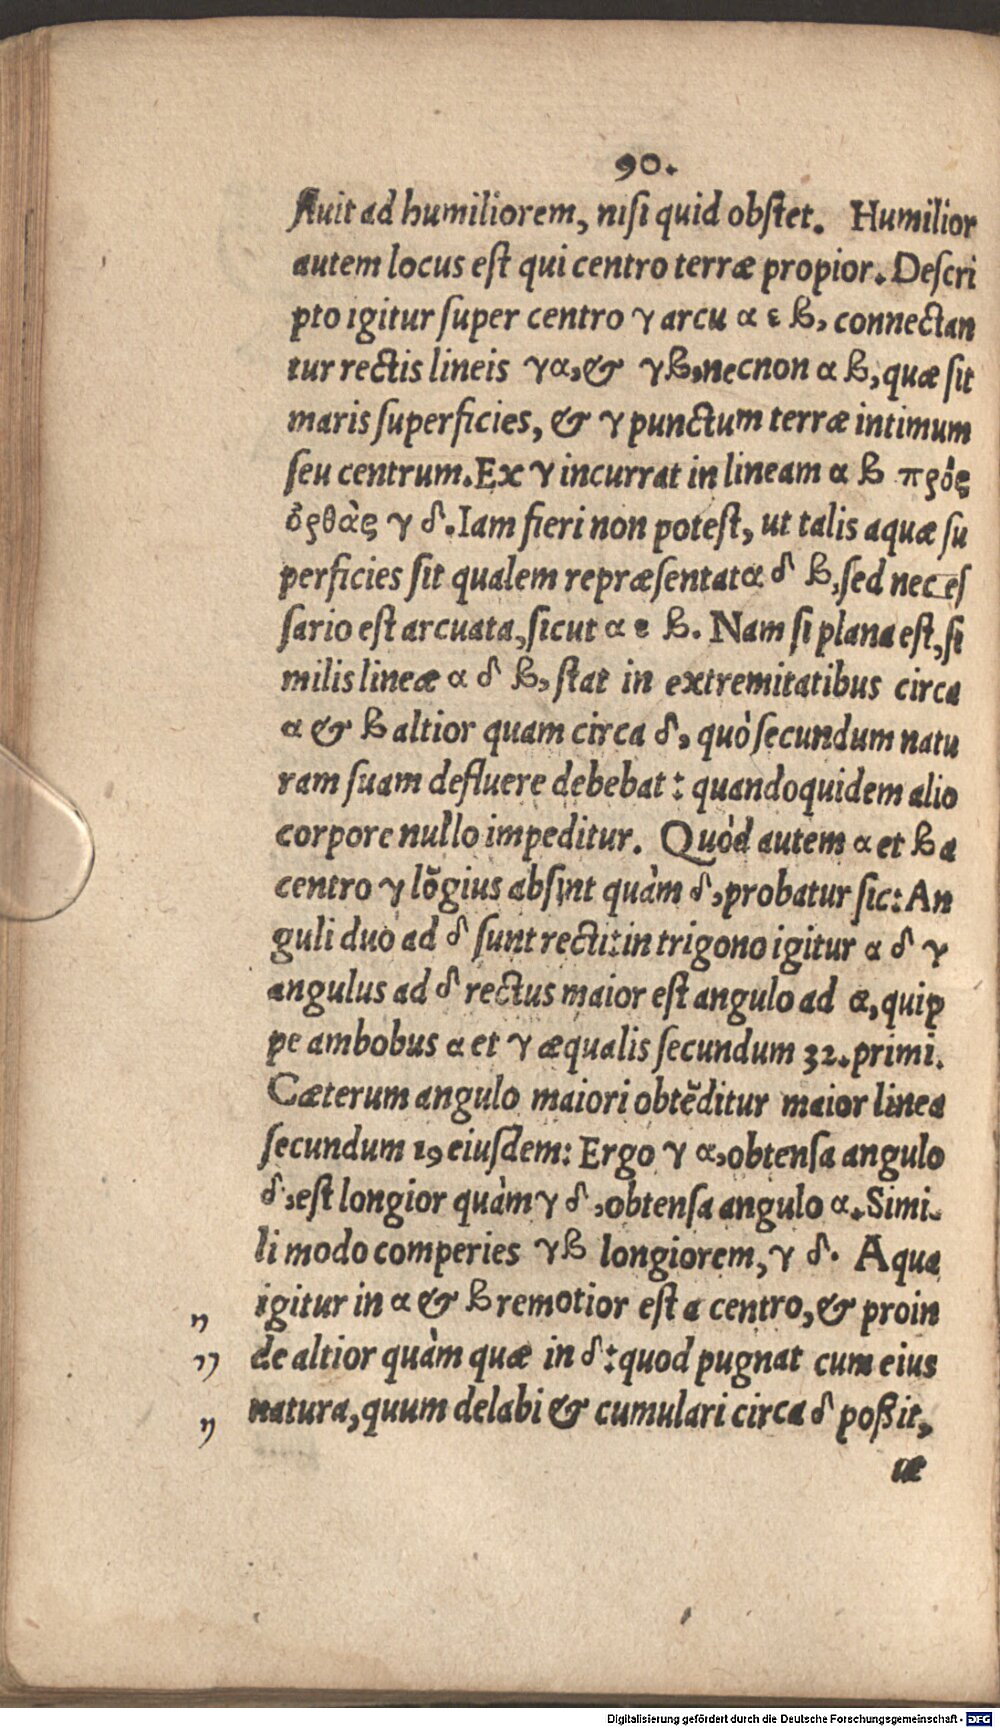 90.
fluit ad humiliorem, nisi quid obstet. Humilior
autem locus est qui centro terræ propior. Descri
pto igitur super centro γ arcu α ε β, connectan
tur rectis lineis γα, & γβ, necnon α β, quæ sit
maris superficies, & γ punctum terræ intimum
seu centrum. Ex γ incurrat in lineam α β πρὸς
ὀρθὰς γ δ. Iam fieri non potest, ut talis aquæ su
perficies sit qualem repræsentat α δ β, sed neces
sario est arcuata, sicut α ε β. Nam si plana est, si
milis lineæ α δ β, stat in extremitatibus circa
α & β altior quam circa δ, quò secundum natu
ram suam defluere debebat: quandoquidem alio
corpore nullo impeditur. Quòd autem α et β a
centro γ lõgius absint quàm δ, probatur sic: An
guli duo ad δ sunt recti: in trigono igitur α δ γ
angulus ad δ rectus maior est angulo ad α, quip
pe ambobus α et γ æqualis secundum 32. primi.
Cæterum angulo maiori obtẽditur maior linea
secundum 19 eiusdem: Ergo γ α, obtensa angulo
δ, est longior quàm γ δ, obtensa angulo α. Simi-
li modo comperies γβ longiorem, γ δ. Aqua
igitur in α & β remotior est a centro, & proin
de altior quàm quæ in δ: quod pugnat cum eius
natura, quum delabi & cumulari circa δ poßit,
ut
Digitalisierung gefördert durch die Deutsche Forschungsgemeinschaft - DFG